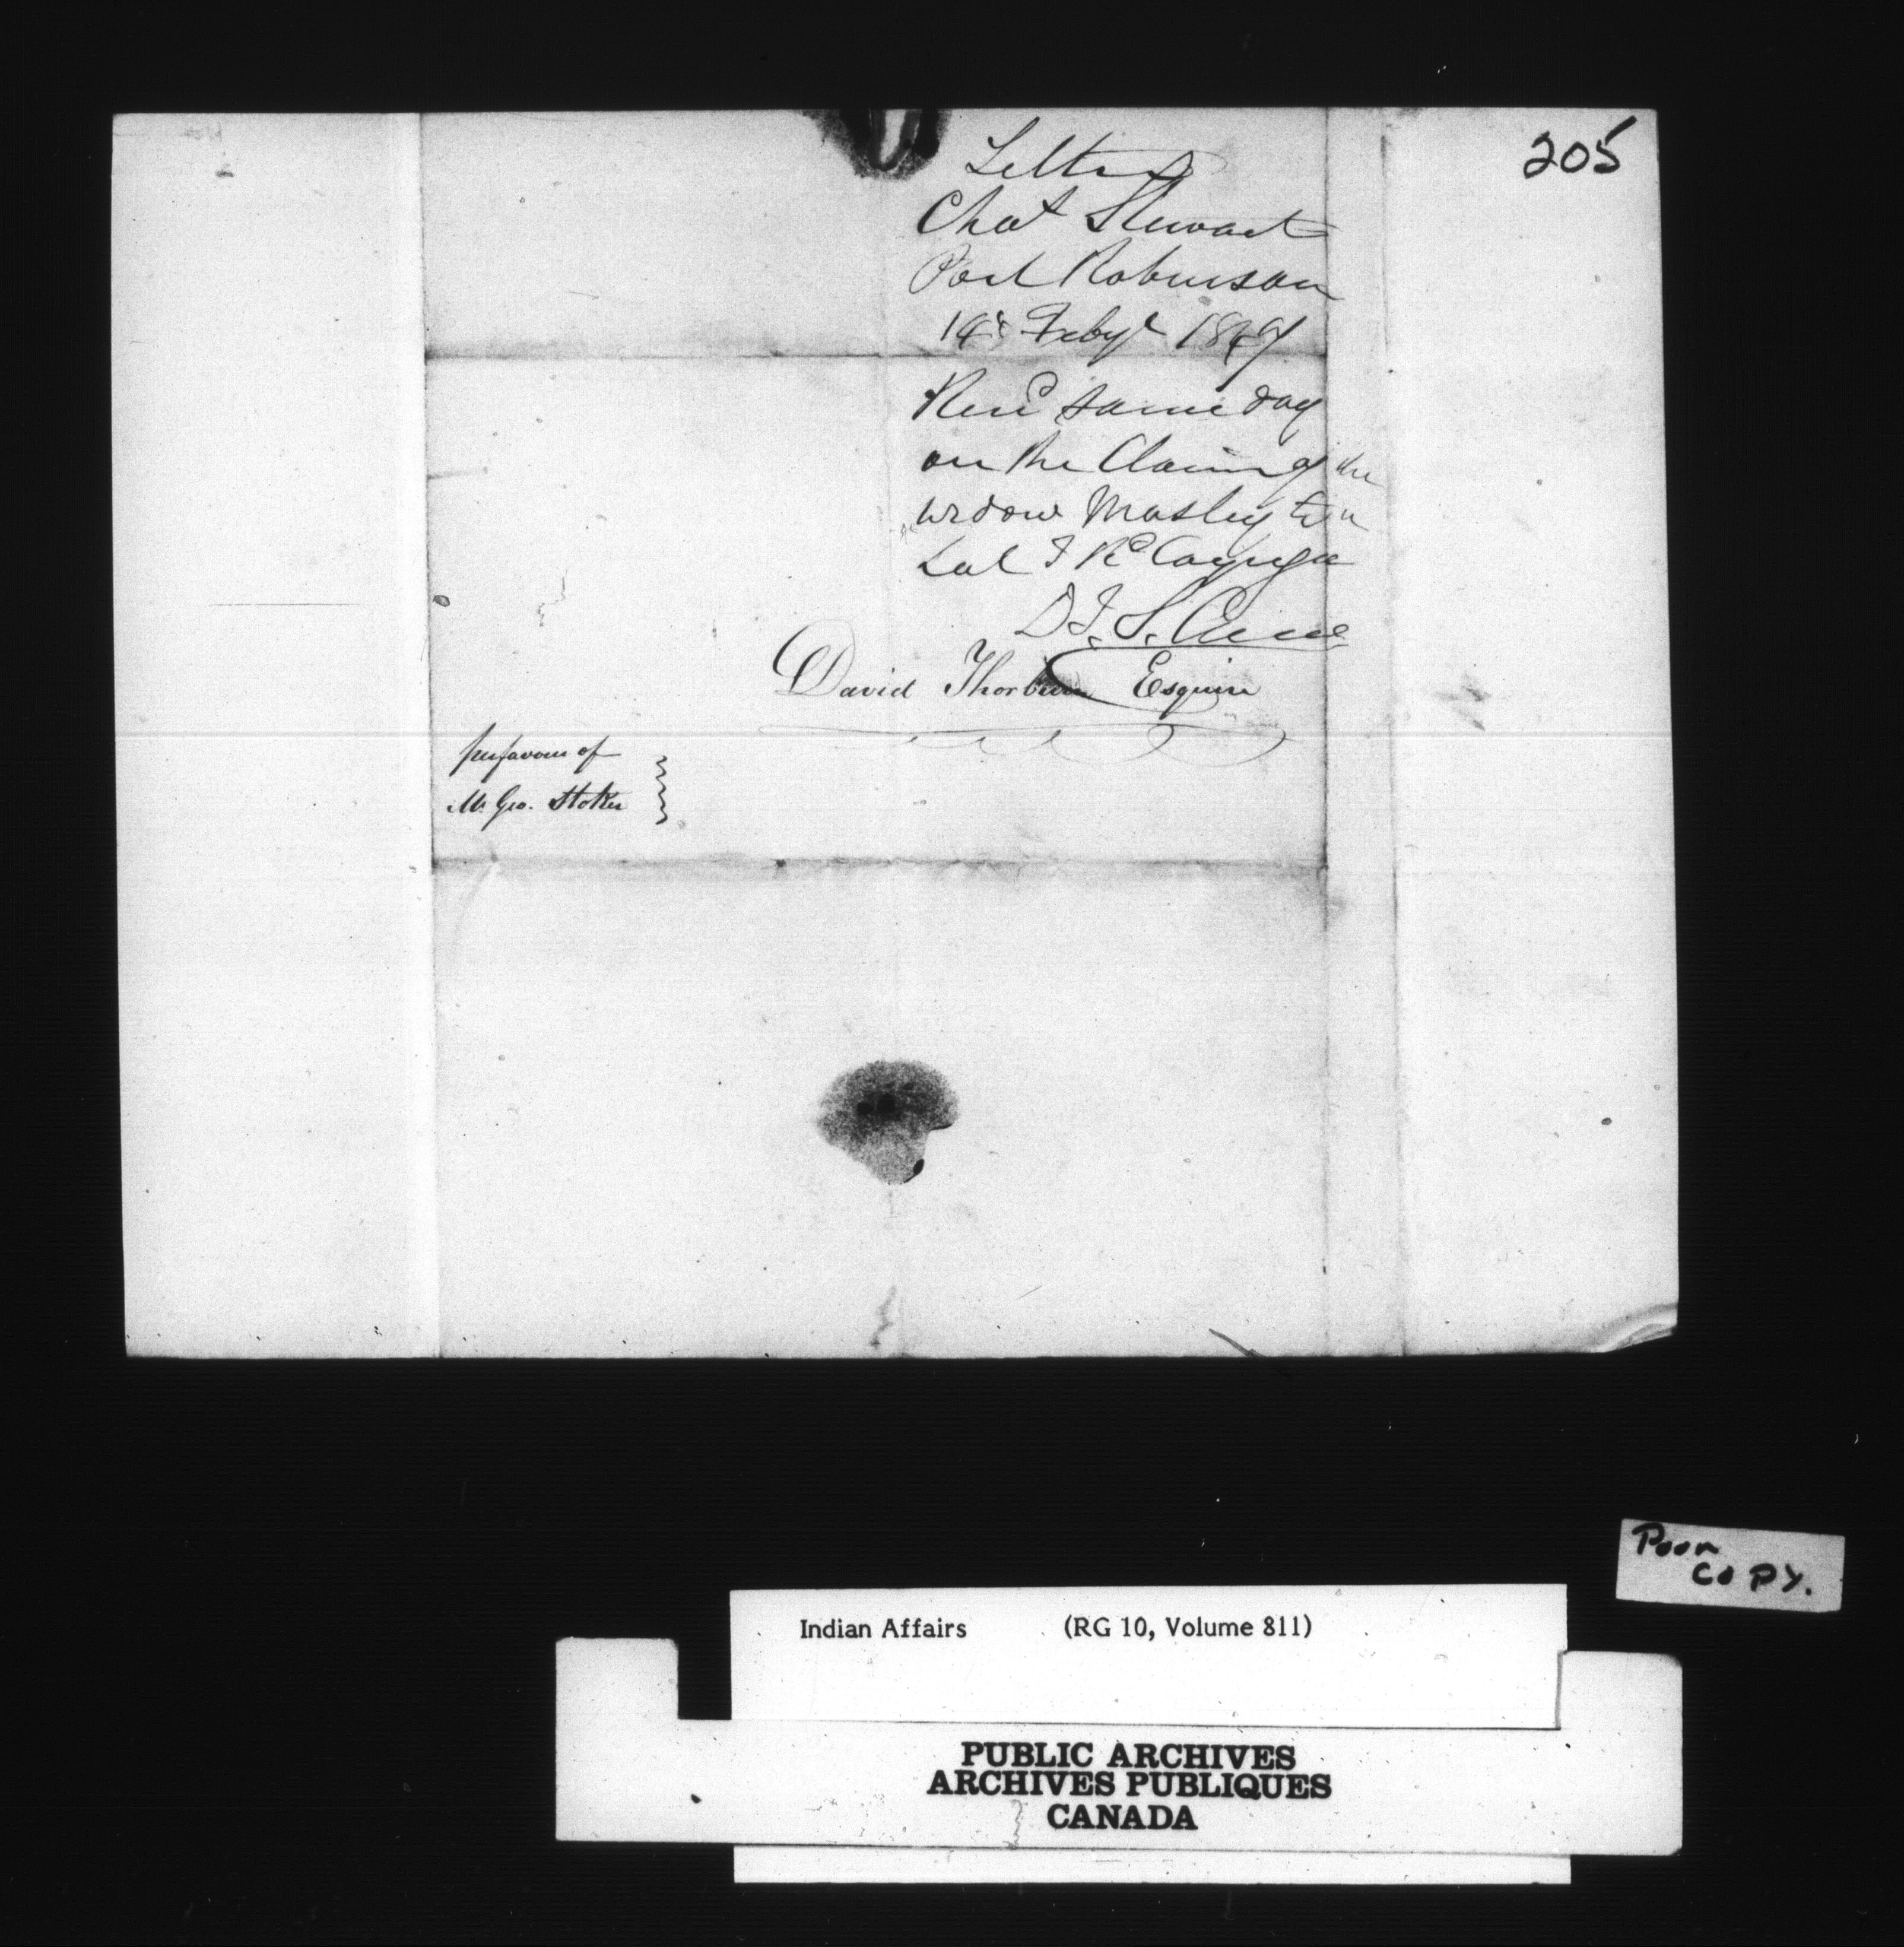 205
Letter
Chas Stewart
Port Robinson
14th Feby 1847
Recd same day
on the Claim of the
widow Mosley to a
Lot I Rd Cayuga
David Thorburn Esquire
per favour of
Mr Geo. Stoker
Poor
COPY.
Indian Affairs (RG 10, Volume 811)
PUBLIC ARCHIVES
ARCHIVES PUBLIQUES
CANADA